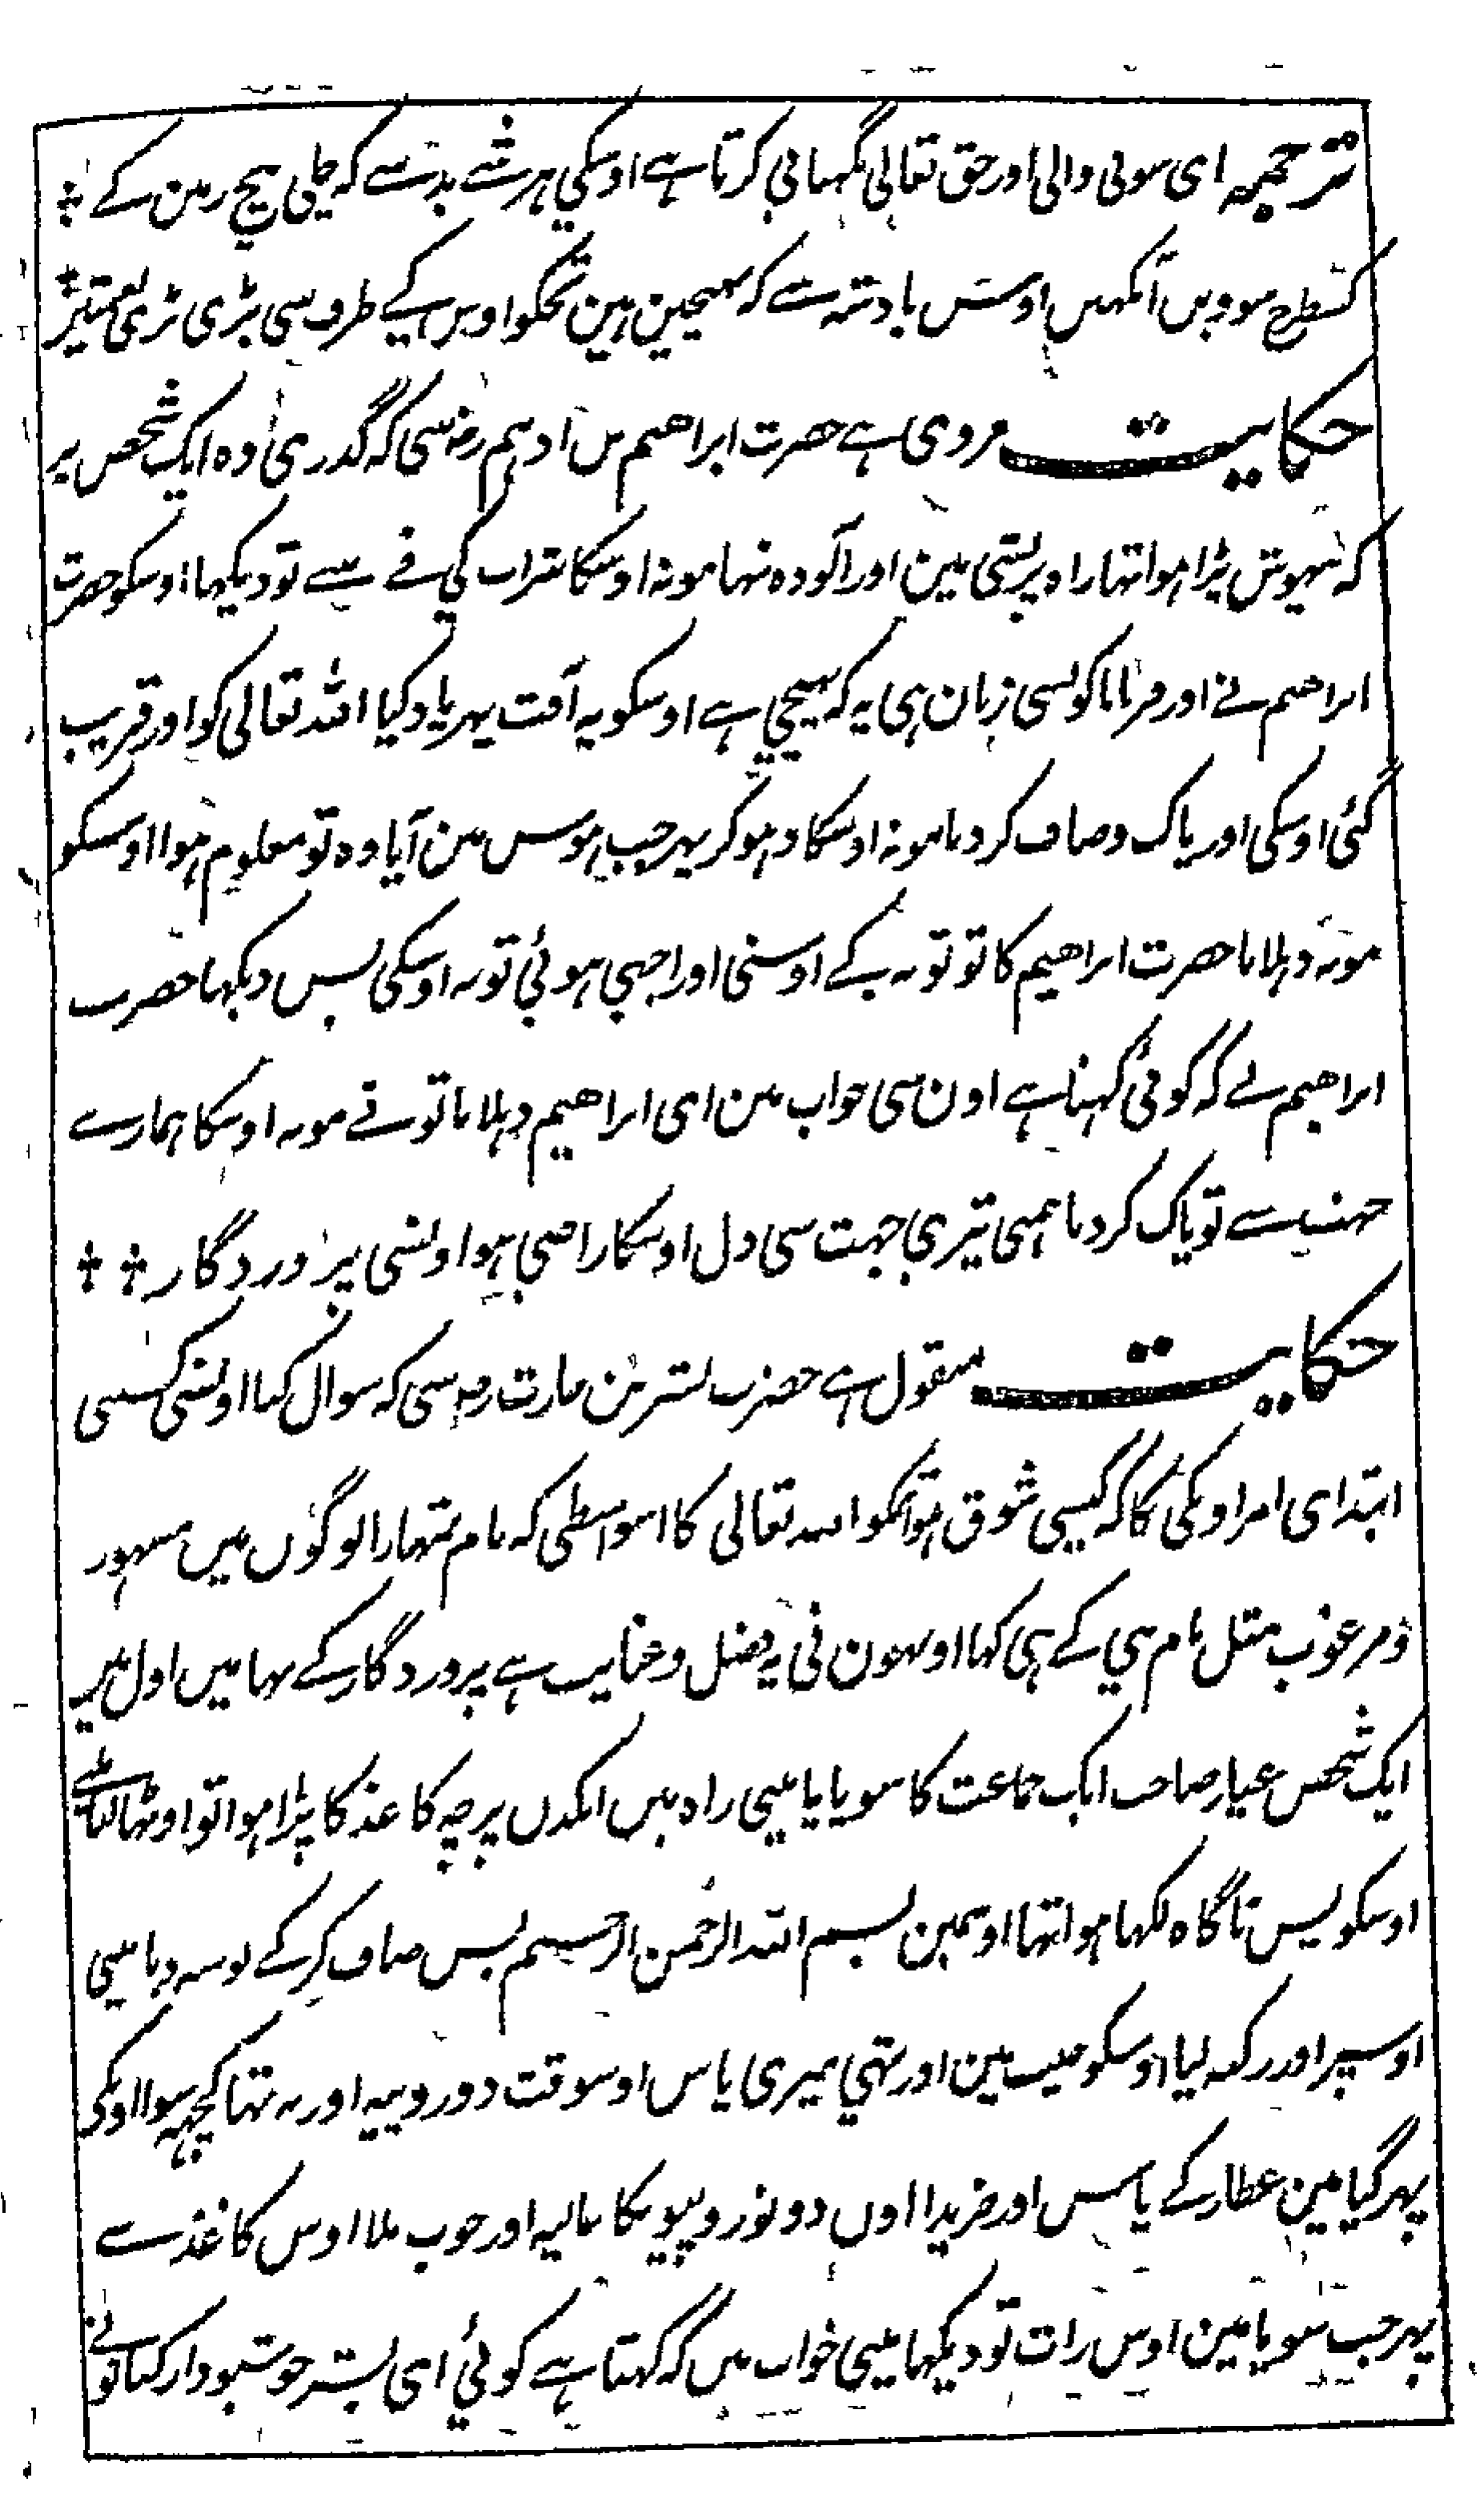 ترجمہ ای سونی والی اور حق تعالی نگہبانی کرتا ہے اوسکی ہر شے بد سے کہ چلی بیچ رین کے ؞
کسطرح سووین آنکہیں اوس بادشہ سے کہ بہیجین ہین تجکو اوس کے طرف سی بڑی بڑی نعمتین
حکایت مروی ہے حضرت ابراھیم بن ادہم رضی سی کہ گذری وہ ایک شخص پر
کہ بیہوش پڑا ہوا تہا راہ پر بستی مین اور آلودہ تہا مونہ اوسکا شراب کی قے سے تو دیکہا اوسکو حضرت
ابراھیم نے اور فرمایا کونسی زبان ہی یہ کہ پہنچی ہے اوسکو یہ آفت پہر یاد کیا اللہ تعالی کو اور قریب
گئی اوسکی اور پاک و صاف کردیا مونہ اوسکا دہو کر پہر جب ہوش مین آیا وہ تو معلوم ہوا اوسکو
مونہ دہلانا حضرت ابراھیم کا تو توبہ کے اوسنی اور اچہی ہوئی توبہ اوسکی پس دیکہا حضرت
ابراھیم نے کہ کوئی کہتا ہے اون سی خواب مین ای ابراھیم دہلایا تو نے مونہ اوسکا ہمارے
جہت سے تو پاک کردیا ہمنی تیری جہت سی دل اوسکا راضی ہوا اونسی پروردگار ؞ ؞
حکایت منقول ہے حضرت بشر بن حارث رح سی کہ سوال کیا اونسی کسی
ابتدای امر اونکی کا کہ کیسی شوق ہوا تمکو اللہ تعالی کا اسواسطی کہ نام تمہارا لوگوں میں مشہور
و مرغوب مثل نام نبی کے ہی کہا اونہون نی یہ فضل و عنایت ہے پروردگار کے تہا میں اول میں
ایک شخص عیار صاحب ایک جماعت کا سو پایا مینی راہ میں ایکدن پرچہ کاغذ کا پڑا ہوا تو اوٹہا لیا مینے
اوسکو پس ناگاہ لکہا ہوا تہا اوسمین بسم اللہ الرحمن الرحیم پس صاف کر کے بوسہ دیا مینی
اوسپر اور رکہہ لیا اوسکو جیب مین اور تہی میری پاس اوسوقت دو روپیہ اور نہ تہا کچہہ سوا اونکی
پہر گیا مین عطار کے پاس اور خریدا اون دونو روپیو نکا غالیہ اور خوب ملا اوس کاغذ سے
پہر جب سویا مین اوس رات تو دیکہا مینی خواب میں کہ کہتا ہے کوئی ای بشر خوشبودار کیا تو نے